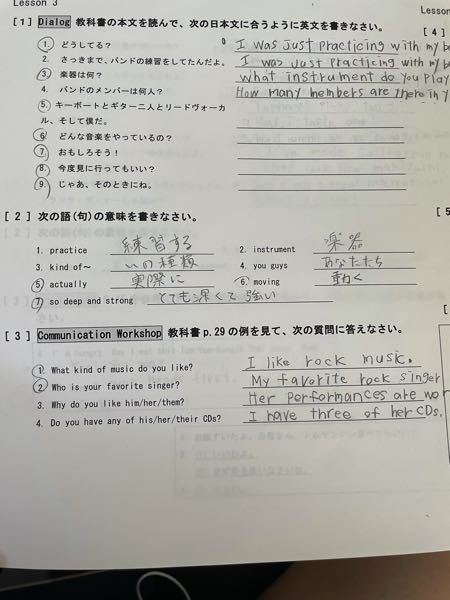 Lesson 3
Lesson
[1] Dialog 教科書の本文を読んで、次の日本文に合うように英文を書きなさい。
[4]
1. どうしてる? I was just practicing with my
2. さっきまで、バンドの練習をしてたんだよ。 I was Just practicing with my
3. 楽器は何? what instrument do you play
4. バンドのメンバーは何人? How many members are there in
5. キーボードとギター二人とリードヴォーカル、そして僕だ。
6. どんな音楽をやっているの?
7. おもしろそう!
8. 今度見に行ってもいい?
9. じゃあ、そのときにね。
[2] 次の語(句)の意味を書きなさい。
[5
1. practice 練習する 2. instrument 楽器
3. kind of~ の種類 4. you guys あなたたち
5) actually 実際に 6. moving 動く
7. so deep and strong とても深くて強い
[3] Communication Workshop 教科書 p.29 の例を見て、次の質問に答えなさい。
1. What kind of music do you like? I like rock music.
2. Who is your favorite singer? My favorite rock singer
3. Why do you like him/her/them? Her performances are
4. Do you have any of his/her/their CDs? I have three of her CDs.